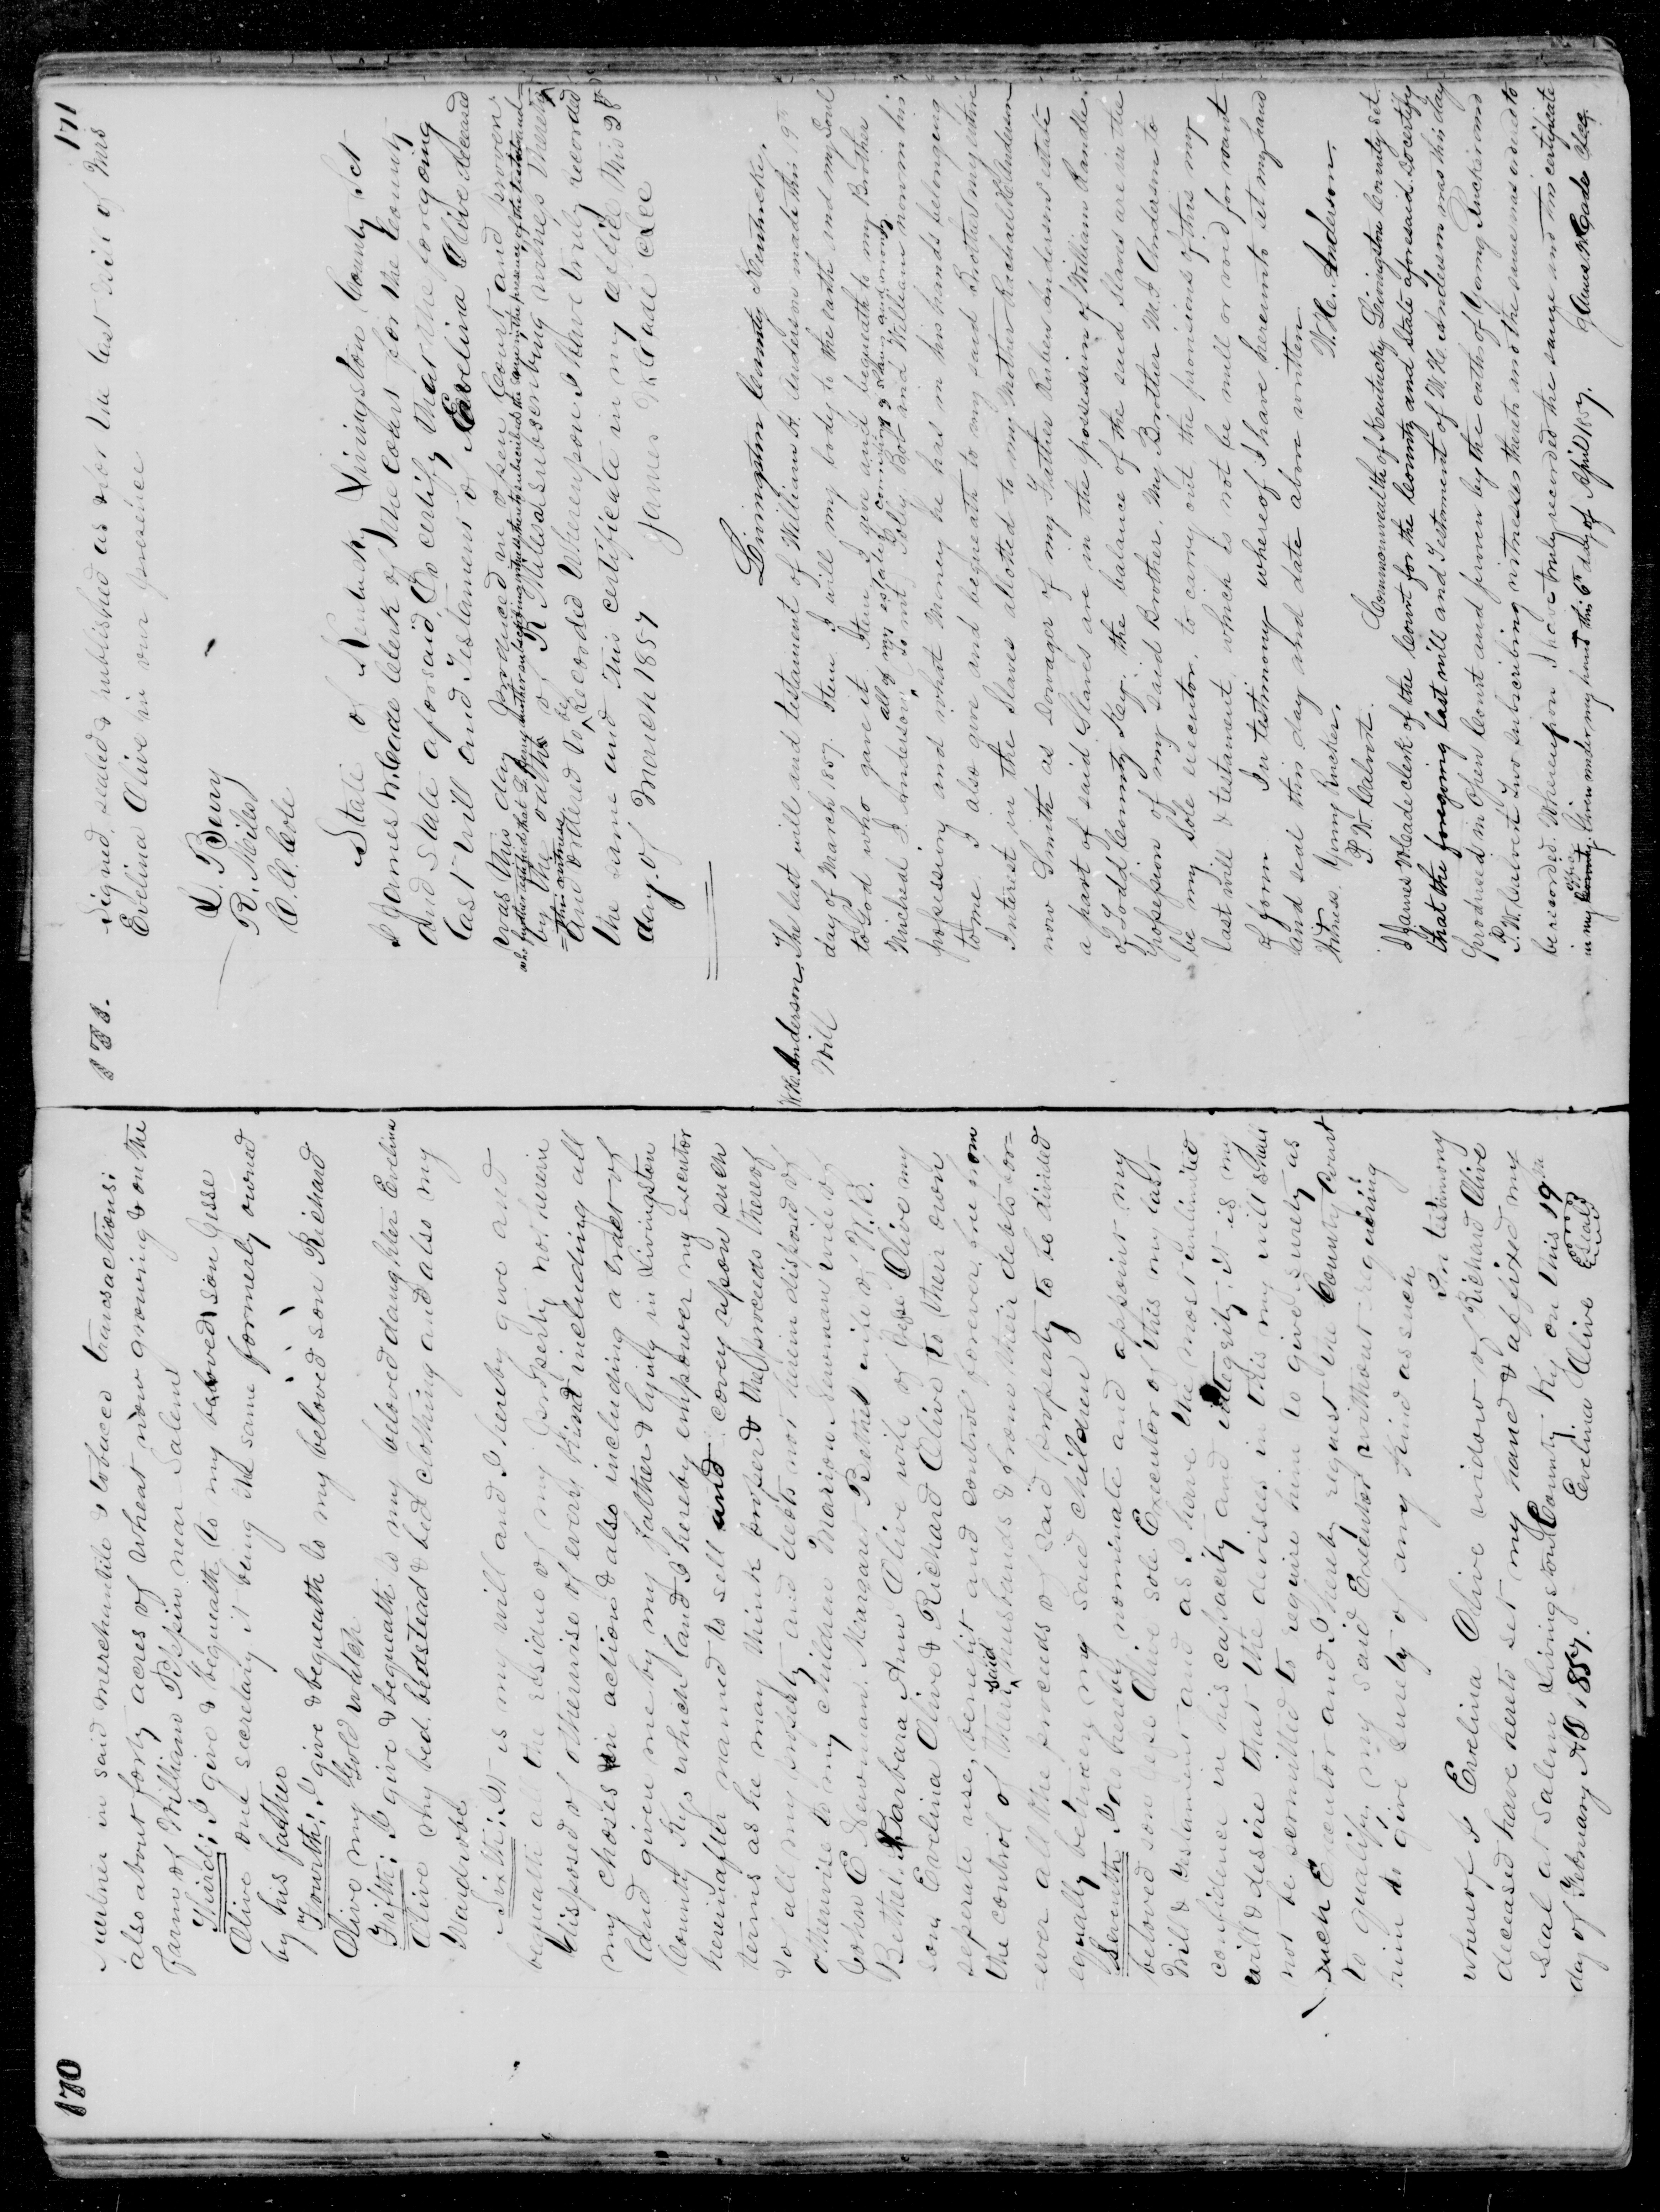 170
partner in said merchantile & tobacco transactions;
also about forty acres of wheat now growing & on the
Farm of William Pippin near Salem
Third; I give & bequeath to my beloved son Jesse
Olive one secretary it being the same formerly owned
by his father
Fourth; I give & bequeath to my beloved son Richard
Olive my Gold watch
Fifth; I give & bequeath to my beloved daughter Evelina
Olive my bed. bedstead & bed clothing and also my
Wardrobe
Sixth; It is my will and I hereby give and
bequeath all the residue of my property not herein
disposed of otherwise of every kind including all
my choses in action & also including a tract of
land given me by my father & lying in Livingston
County Ky; which land I hereby empower my executor
hereinafter named to sell and covey upon such
terms as he may think proper & the proceeds thereof
& of all my property and debts not herein disposed of
otherwise to my children Marion Newman wife of
John C Newman. Margaret Bethel wife of W. B.
Bethel. Barbara Ann Olive wife of Olive my
son Evelina Olive & Richard Olive to their own
seperate use, benefit and control forever free from
the control of their said husbands & from their debts for-
ever all the proceeds of said property to be divided
equally between my said children
Seventh I do hereby nominate and appoint my
beloved son Jesse Olive sole Executor of this my last
Will & Testament and as I have the most unlimited
confidence in his capacity and integrity; it is my
will & desire that the devisees in this my will shall
not be permitted to require him to give surety as
such Executor and I hereby request the County Court
to qualify my said Executor without requiring
him to give surety of any kind as such
In testimony
whereof I Evelina Olive widow of Richard Olive
deceased have hereto set my hand & affixed my
seal at Salem Livingston County Ky on this 19th
day of February AD 1857. Evelina Olive Seal
171
Signed, sealed & published as & for the last will of Mrs
Evelina Olive in our presence
L. Berry
R. Miles
State of Kentucky Livingston County Sct
I James McCade Clerk of the court for the County
and State aforesaid Do certify that the foregoing
last will and Testament of Evelina Olive deceased
was this day produced in open Court and proven
by the oaths of R Miles a subscribing witness thereto
and ordered to be Recorded Whereupon I have truly recorded
the same and this certificate in my office this 2d
day of March 1857 James McCade Clk
Livingston County Kentucky.
W. H. Anderson
Will
The last will and testament of William H. Anderson made this 9th
day of March 1857. Item I will my body to the earth and my Soul
to God who gave it. Item I give and bequeath to my Brother
Micheal J. Anderson, all of my estate, consisting of 3 Slaves and money
to wit Polly Bob and William now in his
possession, and what Money he has in his hands belonging
to me. I also give and bequeath to my said Brother my entire
Interest in the Slaves allotted to my Mother Rachael Anderson
now Smith as Dowager of my Father Reuben Andersons estate
a part of said Slaves are in the possession of William Randle
of Todd County Key: the balance of the said Slaves are in the
possession of my said Brother. My Brother M. J. Anderson to
be my Sole executor, to carry out the provisions of this my
last will & testament which to not be null or void for want
of form In testimony whereof I have hereunto set my hand
and seal this day and date above written
Witness. Yonny Ruckins W. H. Anderson.
P. W. Calvert.
Commonwealth of Kentucky Livingston County Sct.
I James McCade clerk of the Court for the County and State aforesaid do certify
that the foregoing last will and Testament of W. H. Anderson was this day
produced in Open Court and proven by the oath of Yonny Ruckins and
P. W. Calvert two subscribing witnesses thereto and the same was ordered to
be recorded. Whereupon I have truly recorded the same and this certificate
in my office Given under my hand this 6th day of April 1857. James McCade Clk